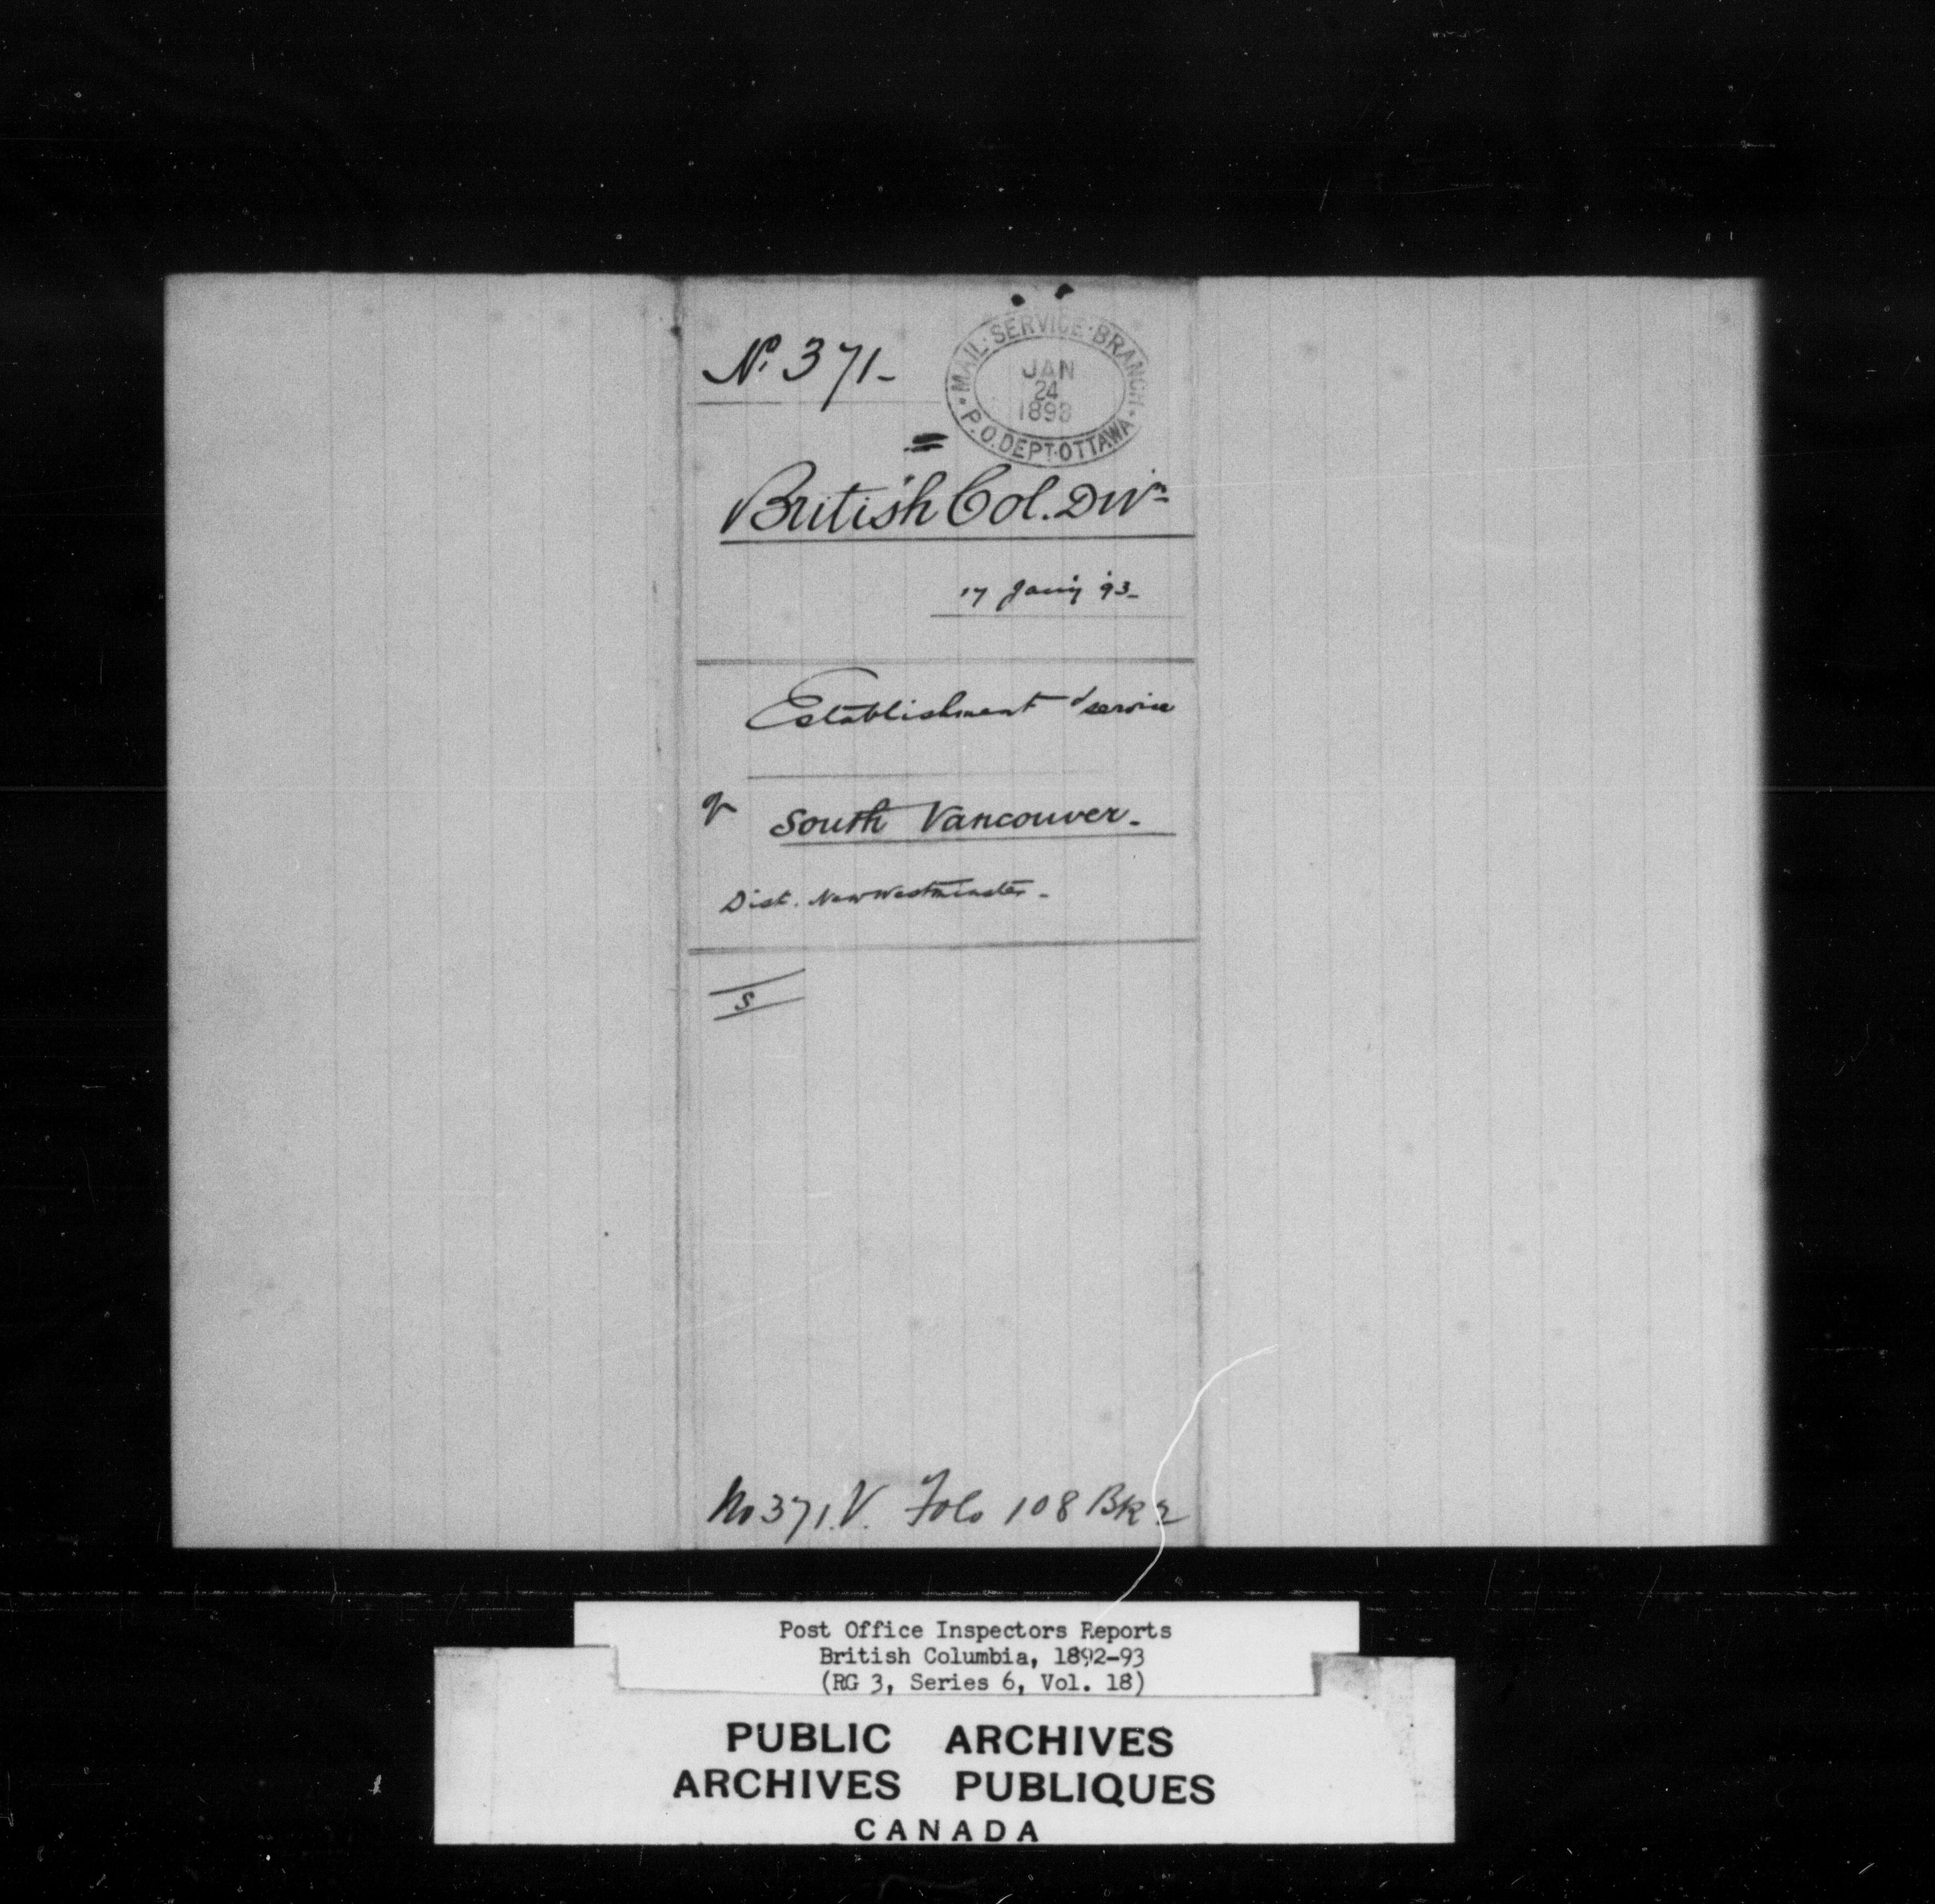 No. 371-
MAIL · SERVICE · BRANCH
JAN
24
1893
P.O. DEPT. OTTAWA
British Col. Divn
17 Jany '93-
Establishment & service
of South Vancouver-
Dist. New Westminster-
S
No 371.V. Folo 108 Bk 2
Post Office Inspectors Reports
British Columbia, 1892-93
(RG 3, Series 6, Vol. 18)
PUBLIC ARCHIVES
ARCHIVES PUBLIQUES
CANADA